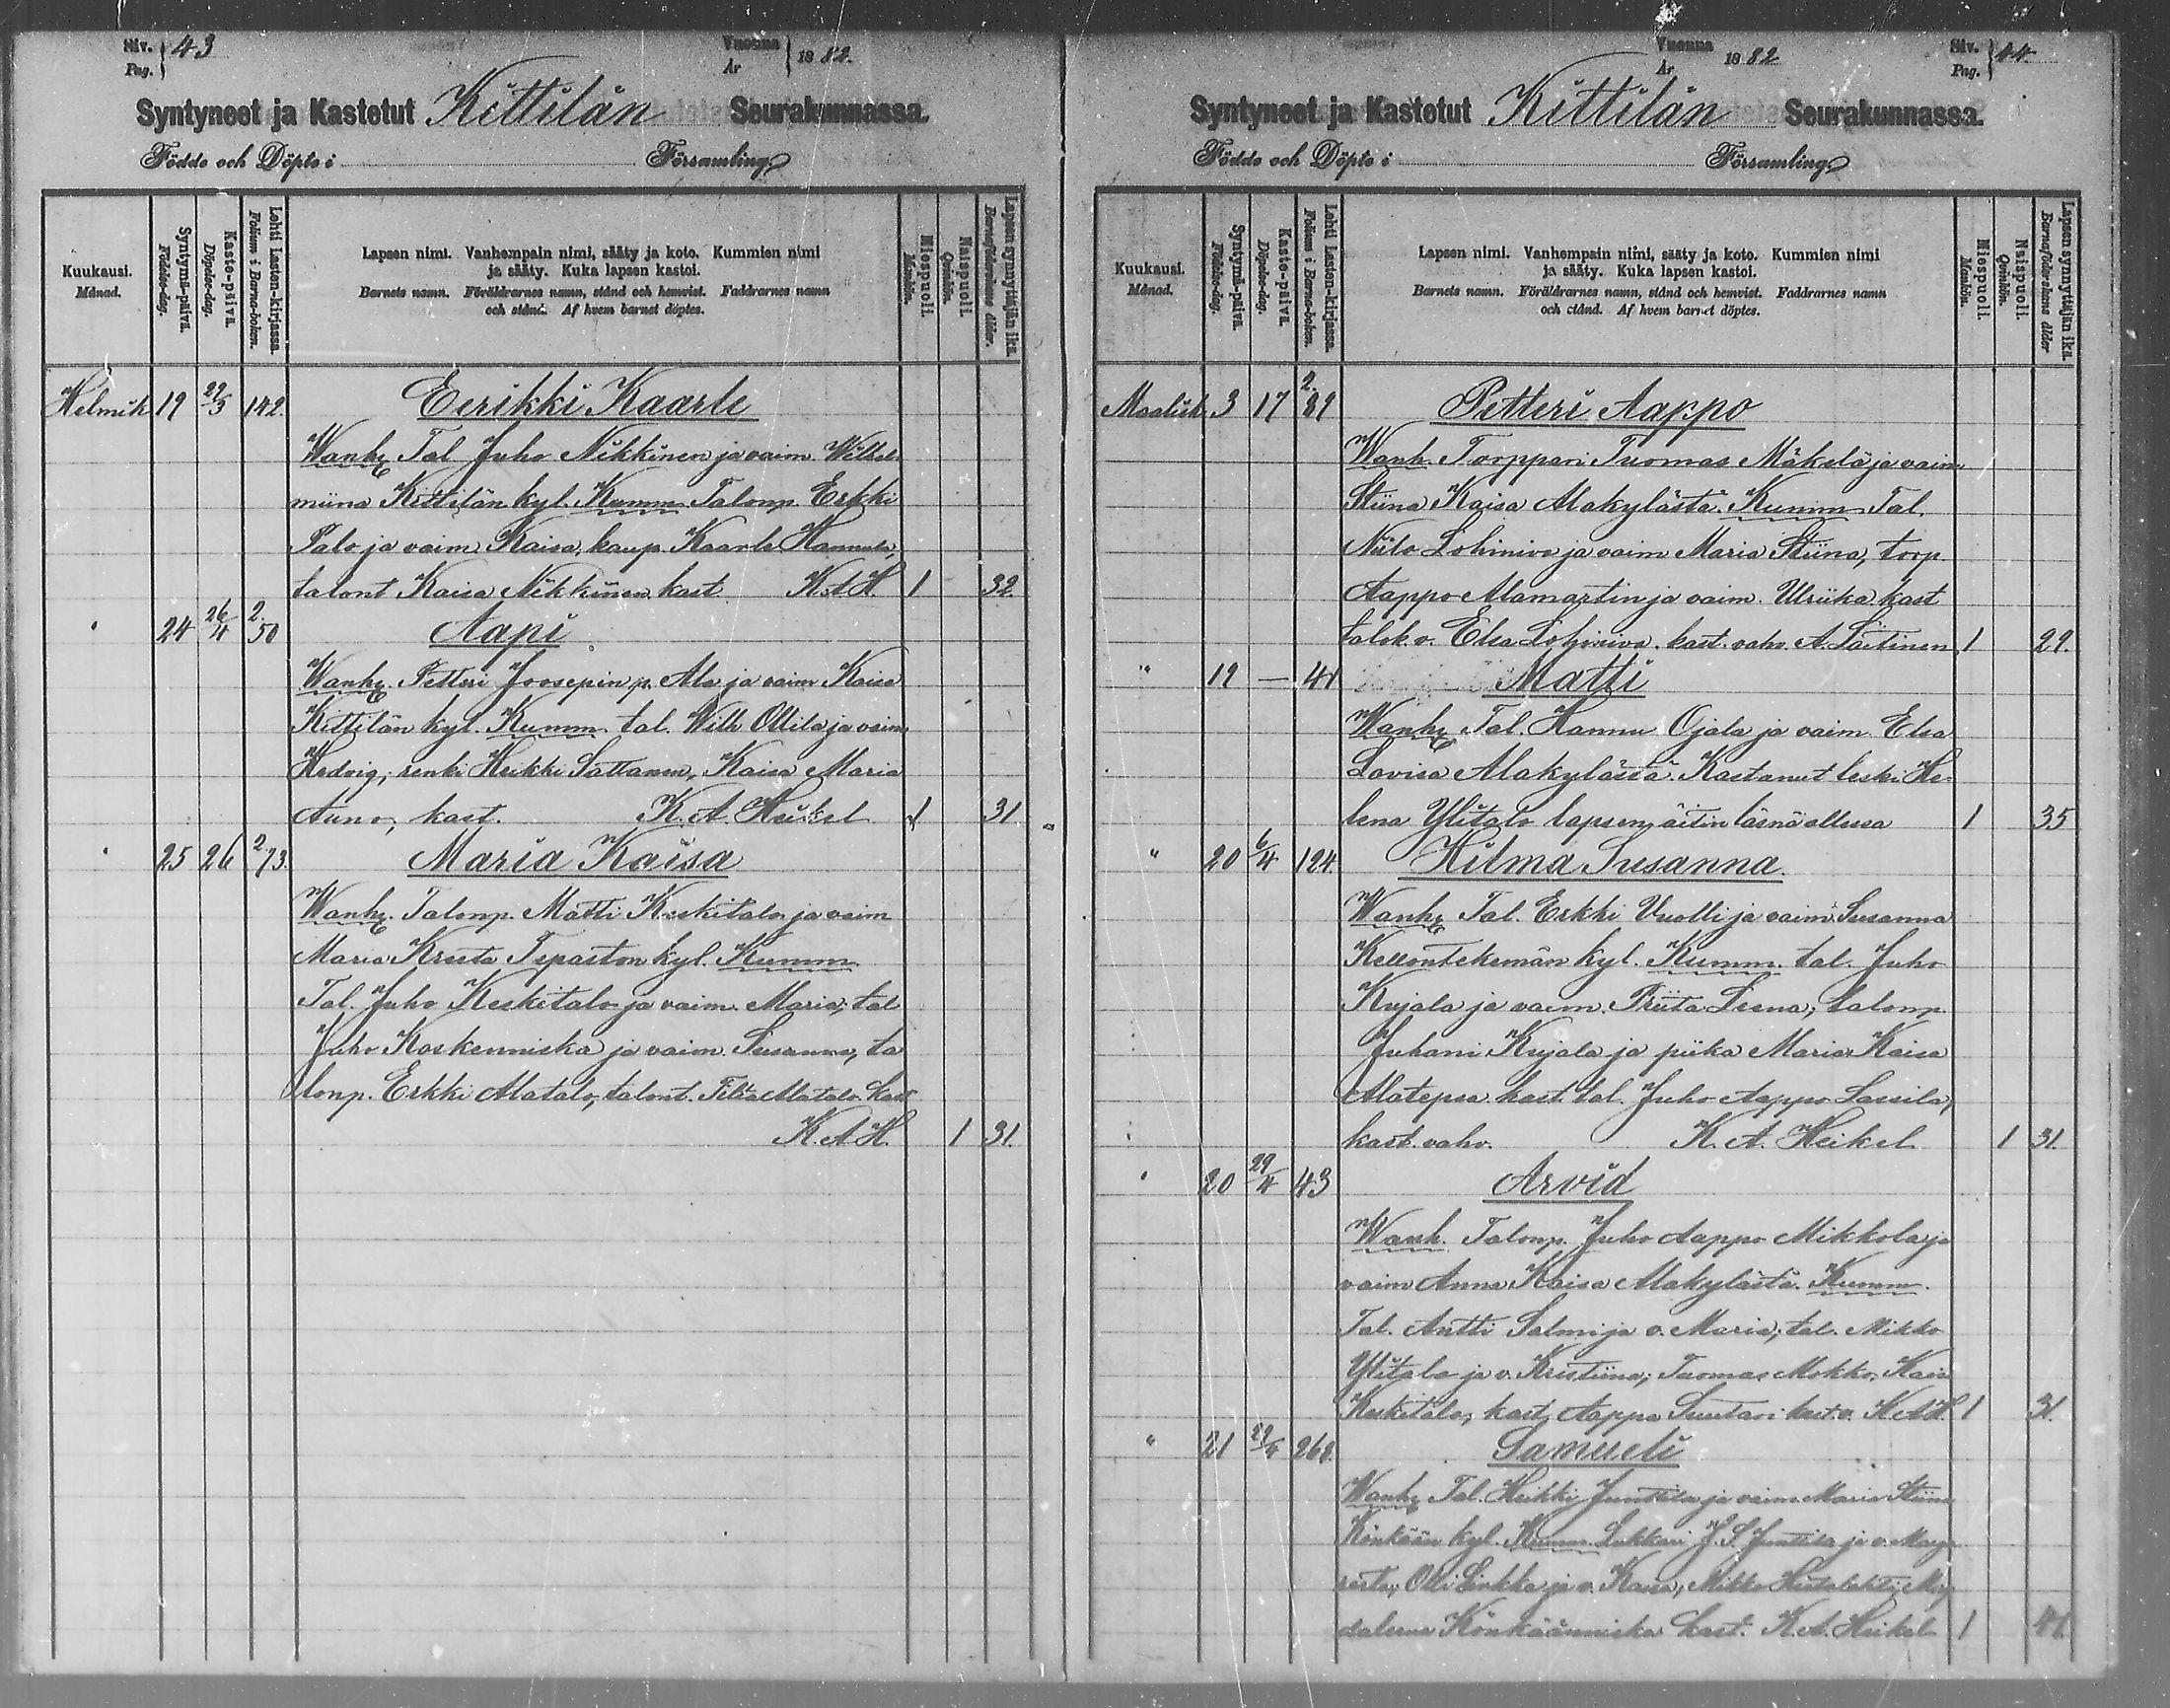 Siv. Pag. } 43
Vuonna År } 1882.
Syntyneet ja Kastetut Kittilän Seurakunnassa.
Födde och Döpte i Församling.
Kuukausi. Månad.
Syntymä-päivä. Födelse-dag.
Kaste-päivä. Döpelse-dag.
Lehti Lasten-kirjassa. Folium i Barna-boken.
Lapsen nimi. Vanhempain nimi, sääty ja koto. Kummien nimi
ja sääty. Kuka lapsen kastoi.
Barnets namn. Föräldrarnes namn, stånd och hemvist. Faddrarnes namn
och stånd. Af hvem barnet döptes.
Miespuoli. Mankön.
Naispuoli. Qvinkön.
Lapsen synnyttäjän ikä. Barnaföderskans ålder.
Helmik 19 22/3 142. Eerikki Kaarle
Wanh. Tal Juho Nikkinen ja vaim. Wilhel
miina Kittilän kyl. Kumm. Talonp. Erkki
Palo ja vaim Kaisa, kaup. Kaarle Hannula,
talont Kaisa Nikkinen kast. K.A.H 1 32
" 24 26/4 2/50 Aapi
Wanh. Petteri Joosepin p. Ala ja vaim Kaisa
Kittilän kyl. Kumm. tal. Wilh Ollila ja vaim
Hedvig, renki Heikki Sattanen, Kaisa Maria
Auno, kast. K. A. Heikel 1 31
" 25 26 2/73. Maria Kaisa
Wanh. Talonp. Matti Keskitalo ja vaim
Maria Kreeta Tepaston kyl. Kumm
Tal. Juho Keskitalo ja vaim. Maria; tal
Juho Koskenniska ja vaim. Susanna, ta
lonp. Erkki Alatalo, talont. Alatalo. kast
K.A.H. 1 31.
Vuonna År 1882
Siv. Pag. } 44.
Syntyneet ja Kastetut Kittilän Seurakunnassa.
Födde och Döpte i Församling.
Kuukausi. Månad.
Syntymä-päivä. Födelse-dag.
Kaste-päivä. Döpelse-dag.
Lehti Lasten-kirjassa. Folium i Barna-boken.
Lapsen nimi. Vanhempain nimi, sääty ja koto. Kummien nimi
ja sääty. Kuka lapsen kastoi.
Barnets namn. Föräldrarnes namn, stånd och hemvist. Faddrarnes namn
och stånd. Af hvem barnet döptes.
Miespuoli. Mankön.
Naispuoli. Qvinkön.
Lapsen synnyttäjän ikä. Barnaföderskans ålder
Maalisk 3 17 2/89 Petteri Aappo
Wanh. Torppari Tuomas Mäkelä ja vaim
Stiina Kaisa Alakylästä. Kumm Tal.
Niilo Lohiniva ja vaim Maria Stiina, torp.
Aappo Alamartin ja vaim. Ulriika. kast
talok. v. Elsa Lohiniva. kast. vahv. A. Laitinen 1 29.
" 19 — 41 Matti
Wanh. Tal. Hannu Ojala ja vaim Elsa
Lovisa Alakylässä. Kastanut leski He-
lena Ylitalo lapsen äitin läsnä ollessa 1 35
" 20 6/4 124. Hilma Susanna.
Wanh. Tal. Erkki Vuolli ja vaim Susanna
Kellontekemän kyl. Kumm. tal. Juho
Kujala ja vaim. Priita Leena; talonp.
Juhani Kujala ja piika Maria Kaisa
Alatepsa. kast. tal. Juho Aappo Lassila,
kast. vahv. K. A. Heikel 1 31.
" 20 29/4 43 Arvid
Wanh. Talonp. Juho Aappo Mikkola ja
vaim Anna Kaisa Alakylästä. Kumm.
Tal. Antti Salmi ja v. Maria; tal. Mikko
Ylitalo ja v. Kristiina; Tuomas Mokko, Kaisa
Keskitalo, kast, Aappo Suutari kast. v. K.A.H. 1 31.
" 21 Samueli
Wanh. Tal. Heikki Junttila ja vaim. Maria Stiina
Könkään kyl. Kumm. Lukkari J. S. Junttila ja v. Marga
reeta; Olli Sirkka ja v. Kaisa, Mikko Hietalahti, Mag
dalena Könkäänniska kast. K. A. Heikel 1 41.